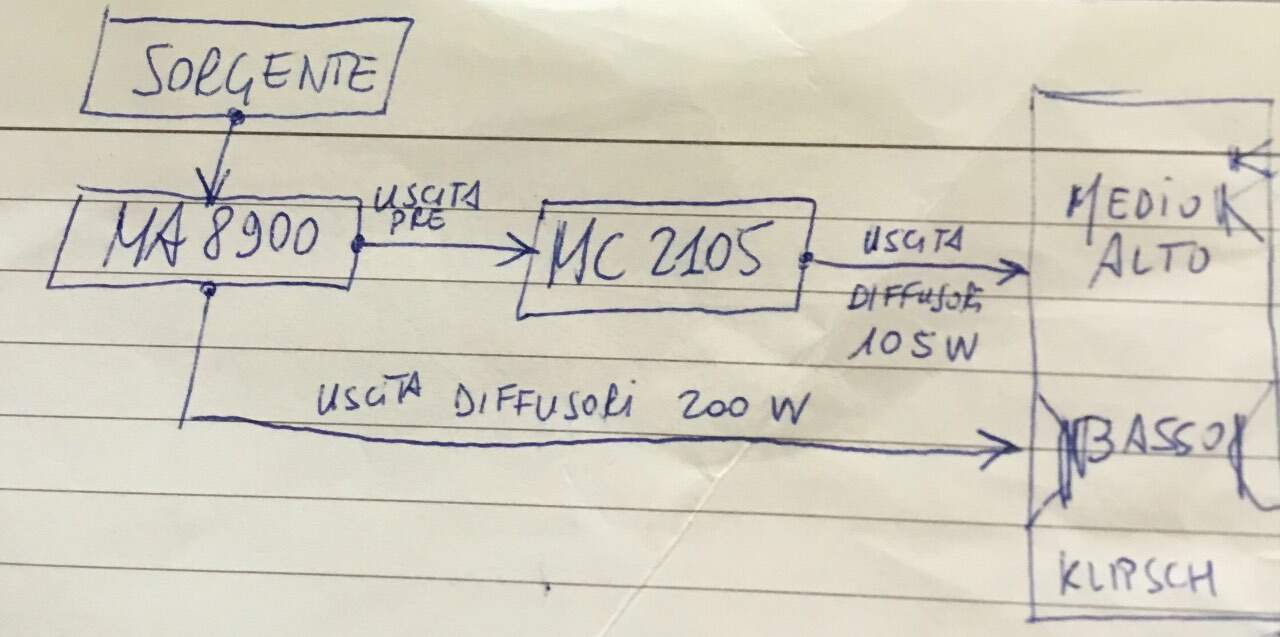 SORGENTE
MA 8900
USCITA
PRE
MC 2105
USCITA
DIFFUSORI
105W
USCITA DIFFUSORI 200 W
MEDIO
ALTO
BASSO
KLIPSCH